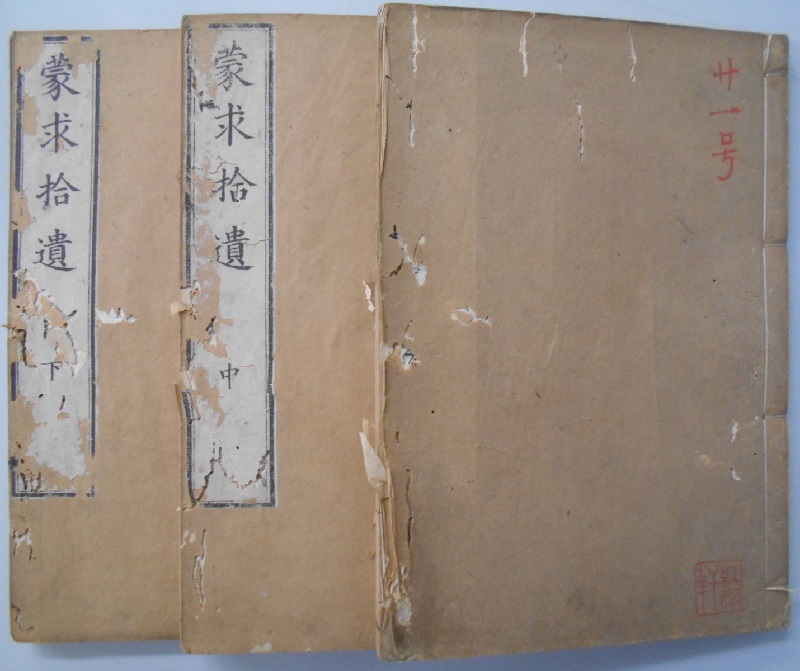 廿一号
蒙求拾遺
中
蒙求拾遺
下